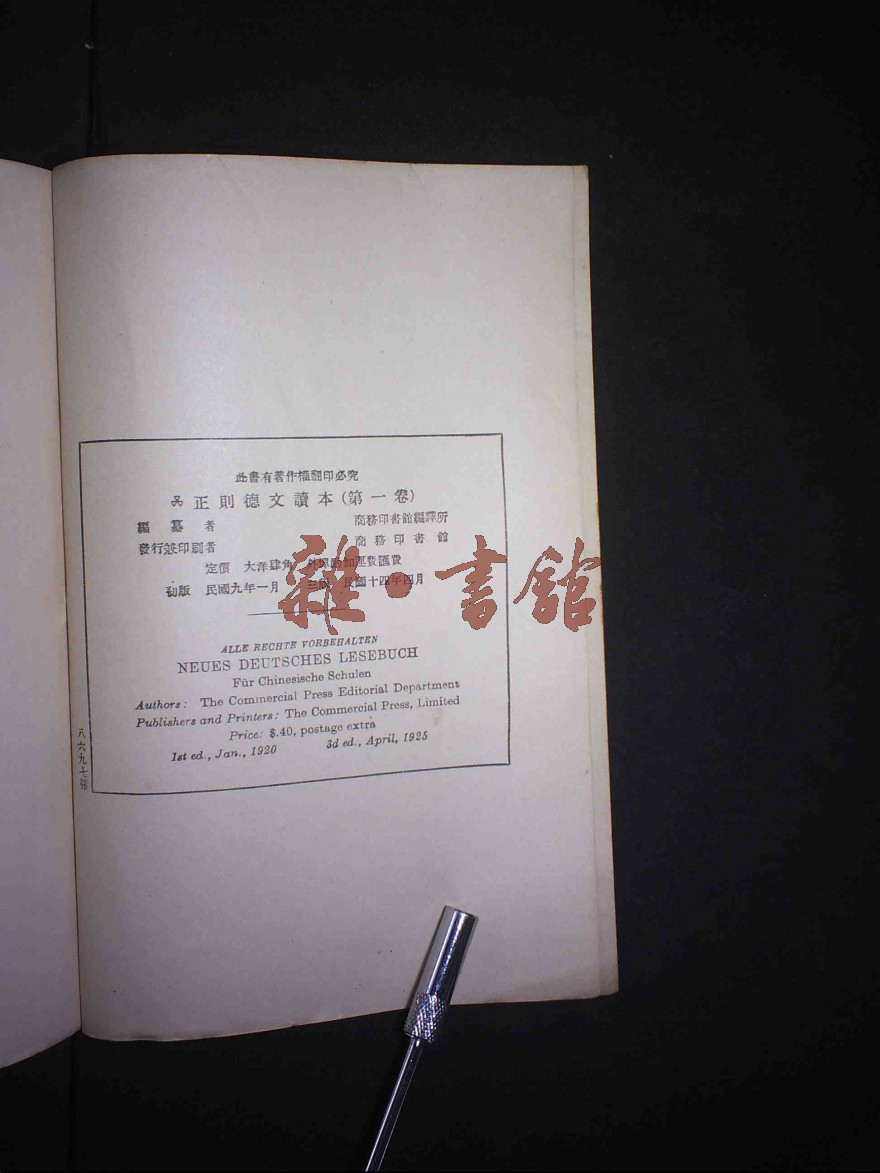 此書有著作權翻印必究
正則德文讀本(第一卷)
編纂者 商務印書館編譯所
發行兼印刷者 商務印書館
定價 大洋肆角 外埠酌加運費匯費
初版 民國九年一月 三版 民國十四年四月
雜·書館
ALLE RECHTE VORBEHALTEN
NEUES DEUTSCHES LESEBUCH
Für Chinesische Schulen
Authors: The Commercial Press Editorial Department
Publishers and Printers: The Commercial Press, Limited
Price: $.40, postage extra
1st ed., Jan., 1920 3d ed., April, 1925
八六九七張